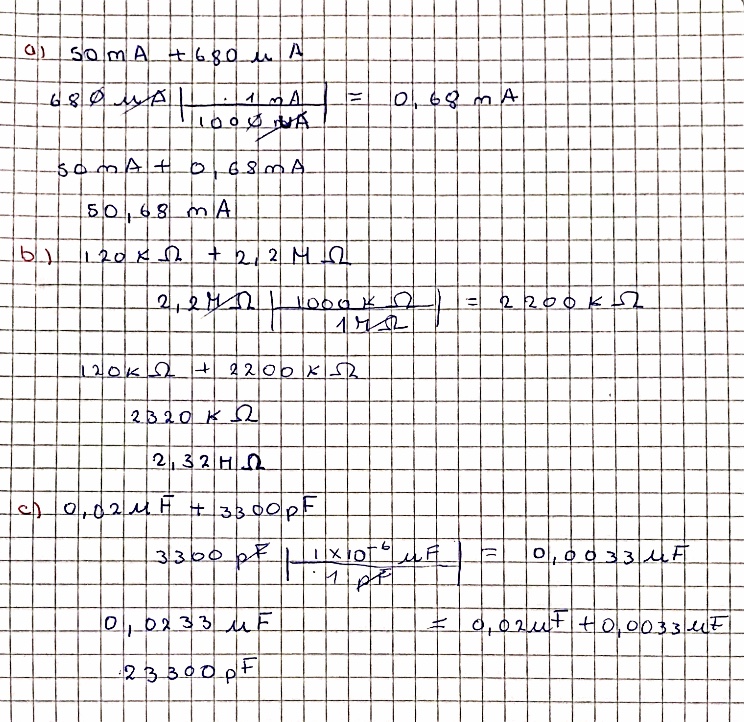 a) 50 mA + 680 μ A
680 μA | 1 mA / 1000 μA | = 0,68 mA
50 mA + 0,68 mA
50,68 mA
b) 120 K Ω + 2,2 M Ω
2,2 M Ω | 1000 K Ω / 1 M Ω | = 2200 K Ω
120 K Ω + 2200 K Ω
2320 K Ω
2,32 M Ω
c) 0,02 μF + 3300 pF
3300 pF | 1 × 10⁻⁶ μF / 1 pF | = 0,0033 μF
0,0233 μF = 0,02 μF + 0,0033 μF
23300 pF